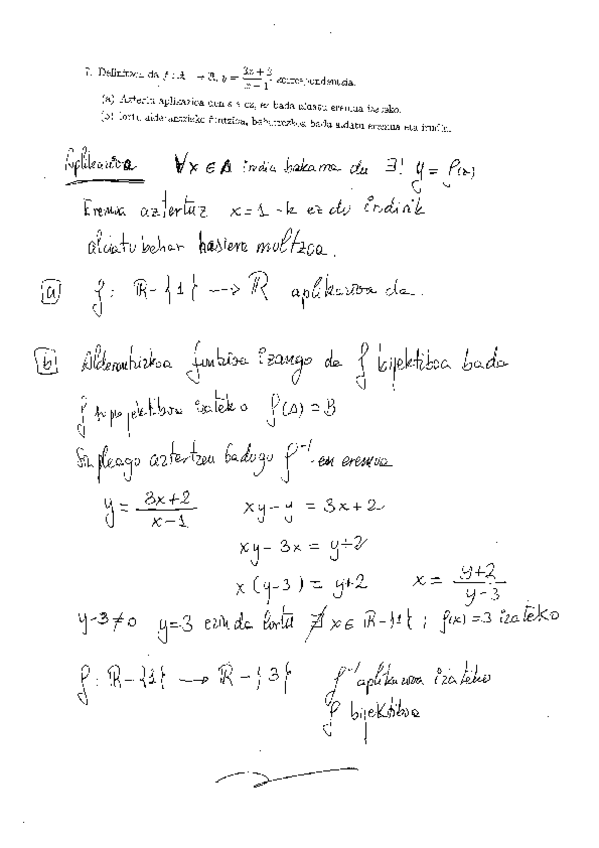 7. Definitzen da f : A → R, y = 3x + 2 / x − 1 korrespondentzia.
(a) Aztertu aplikazioa den ala ez, ez bada aldatu eremua izateko.
(b) Lortu alderantzizko funtzioa, beharrezkoa bada aldatu eremua eta irudia.
Aplikazioa ∀x ∈ A irudia bakarra du ∃! y = f(x)
Eremua aztertuz x=1 -k ez du irudirik
aldatu behar hasiera multzoa.
(a) f: R-{1} → R aplikazioa da.
(b) Alderantzizkoa funtzioa izango da f bijektiboa bada
f suprajektiboa izateko f(A) = B
Sinpleago aztertzen badugu f⁻¹-en eremua
y = 3x+2 / x-1 xy-y = 3x+2
xy-3x = y+2
x(y-3) = y+2 x = y+2 / y-3
y-3≠0 y=3 ezin da lortu ∄ x∈ R-{1} ; f(x)=3 izateko
f: R-{1} → R-{3} f⁻¹ aplikazioa izateko
f bijektiboa